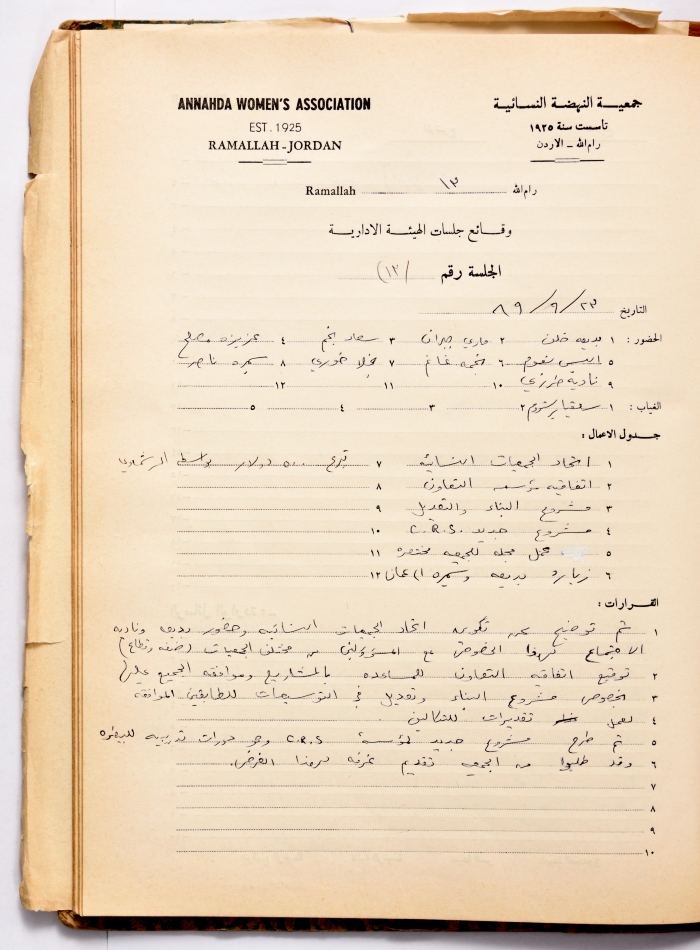 ANNAHDA WOMEN'S ASSOCIATION
EST. 1925
RAMALLAH - JORDAN
جمعيــة النهضـة النسـائيـة
تأسست سنة ١٩٢٥
رام الله ـ الاردن
Ramallah ١٣ رام الله
وقــائع جلسات الهيئـة الاداريـة
الجلسة رقم (١٣)
التاريخ ٢٣ / ٩ / ٨٩
الحضور : ١ بديعه خلف ٢ ماري جبران ٣ سعاد نجم ٤ عزيزه مصلح
٥ اليس نعوم ٦ نجمه غانم ٧ نجلا خوري ٨ سميره ناصر
٩ نادية طرزي ١٠ ١١ ١٢
الغياب : ١ ٢ ٣ ٤ ٥
جــدول الاعمال :
١ اتحاد الجمعيات النسائية ٧ تبرع ٥٠٠ دولار بواسطة
٢ اتفاقيه مؤسسه التعاون ٨
٣ مشروع البناء والتعديل ٩
٤ مشروع جديد C.R.S. ١٠
٥ عمل مجله للجمعيه مختصره ١١
٦ زيارة بديعه وسميره لعمان ١٢
القــرارات :
١ تم توضيح عن تكوين اتحاد الجمعيات النسائيه وحضور بديعه وناديه
الاجتماع بهذا الخصوص مع المسؤولين من مختلف الجمعيات (ضفه وقطاع)
٢ توقيع اتفاقيه التعاون للمساعده بالمشاريع وموافقه الجميع عليها
٣ بخصوص مشروع البناء وتعديل في التوسيعات للطابقين الموافقه
٤ لعمل تقديرات للتكاليف .
٥ تم طرح مشروع جديد لمؤسسة C.R.S وهو دورات تدريبيه
٦ وقد طلبوا من الجمعيه تقديم غرفه لهذا الغرض.
٧
٨
٩
١٠